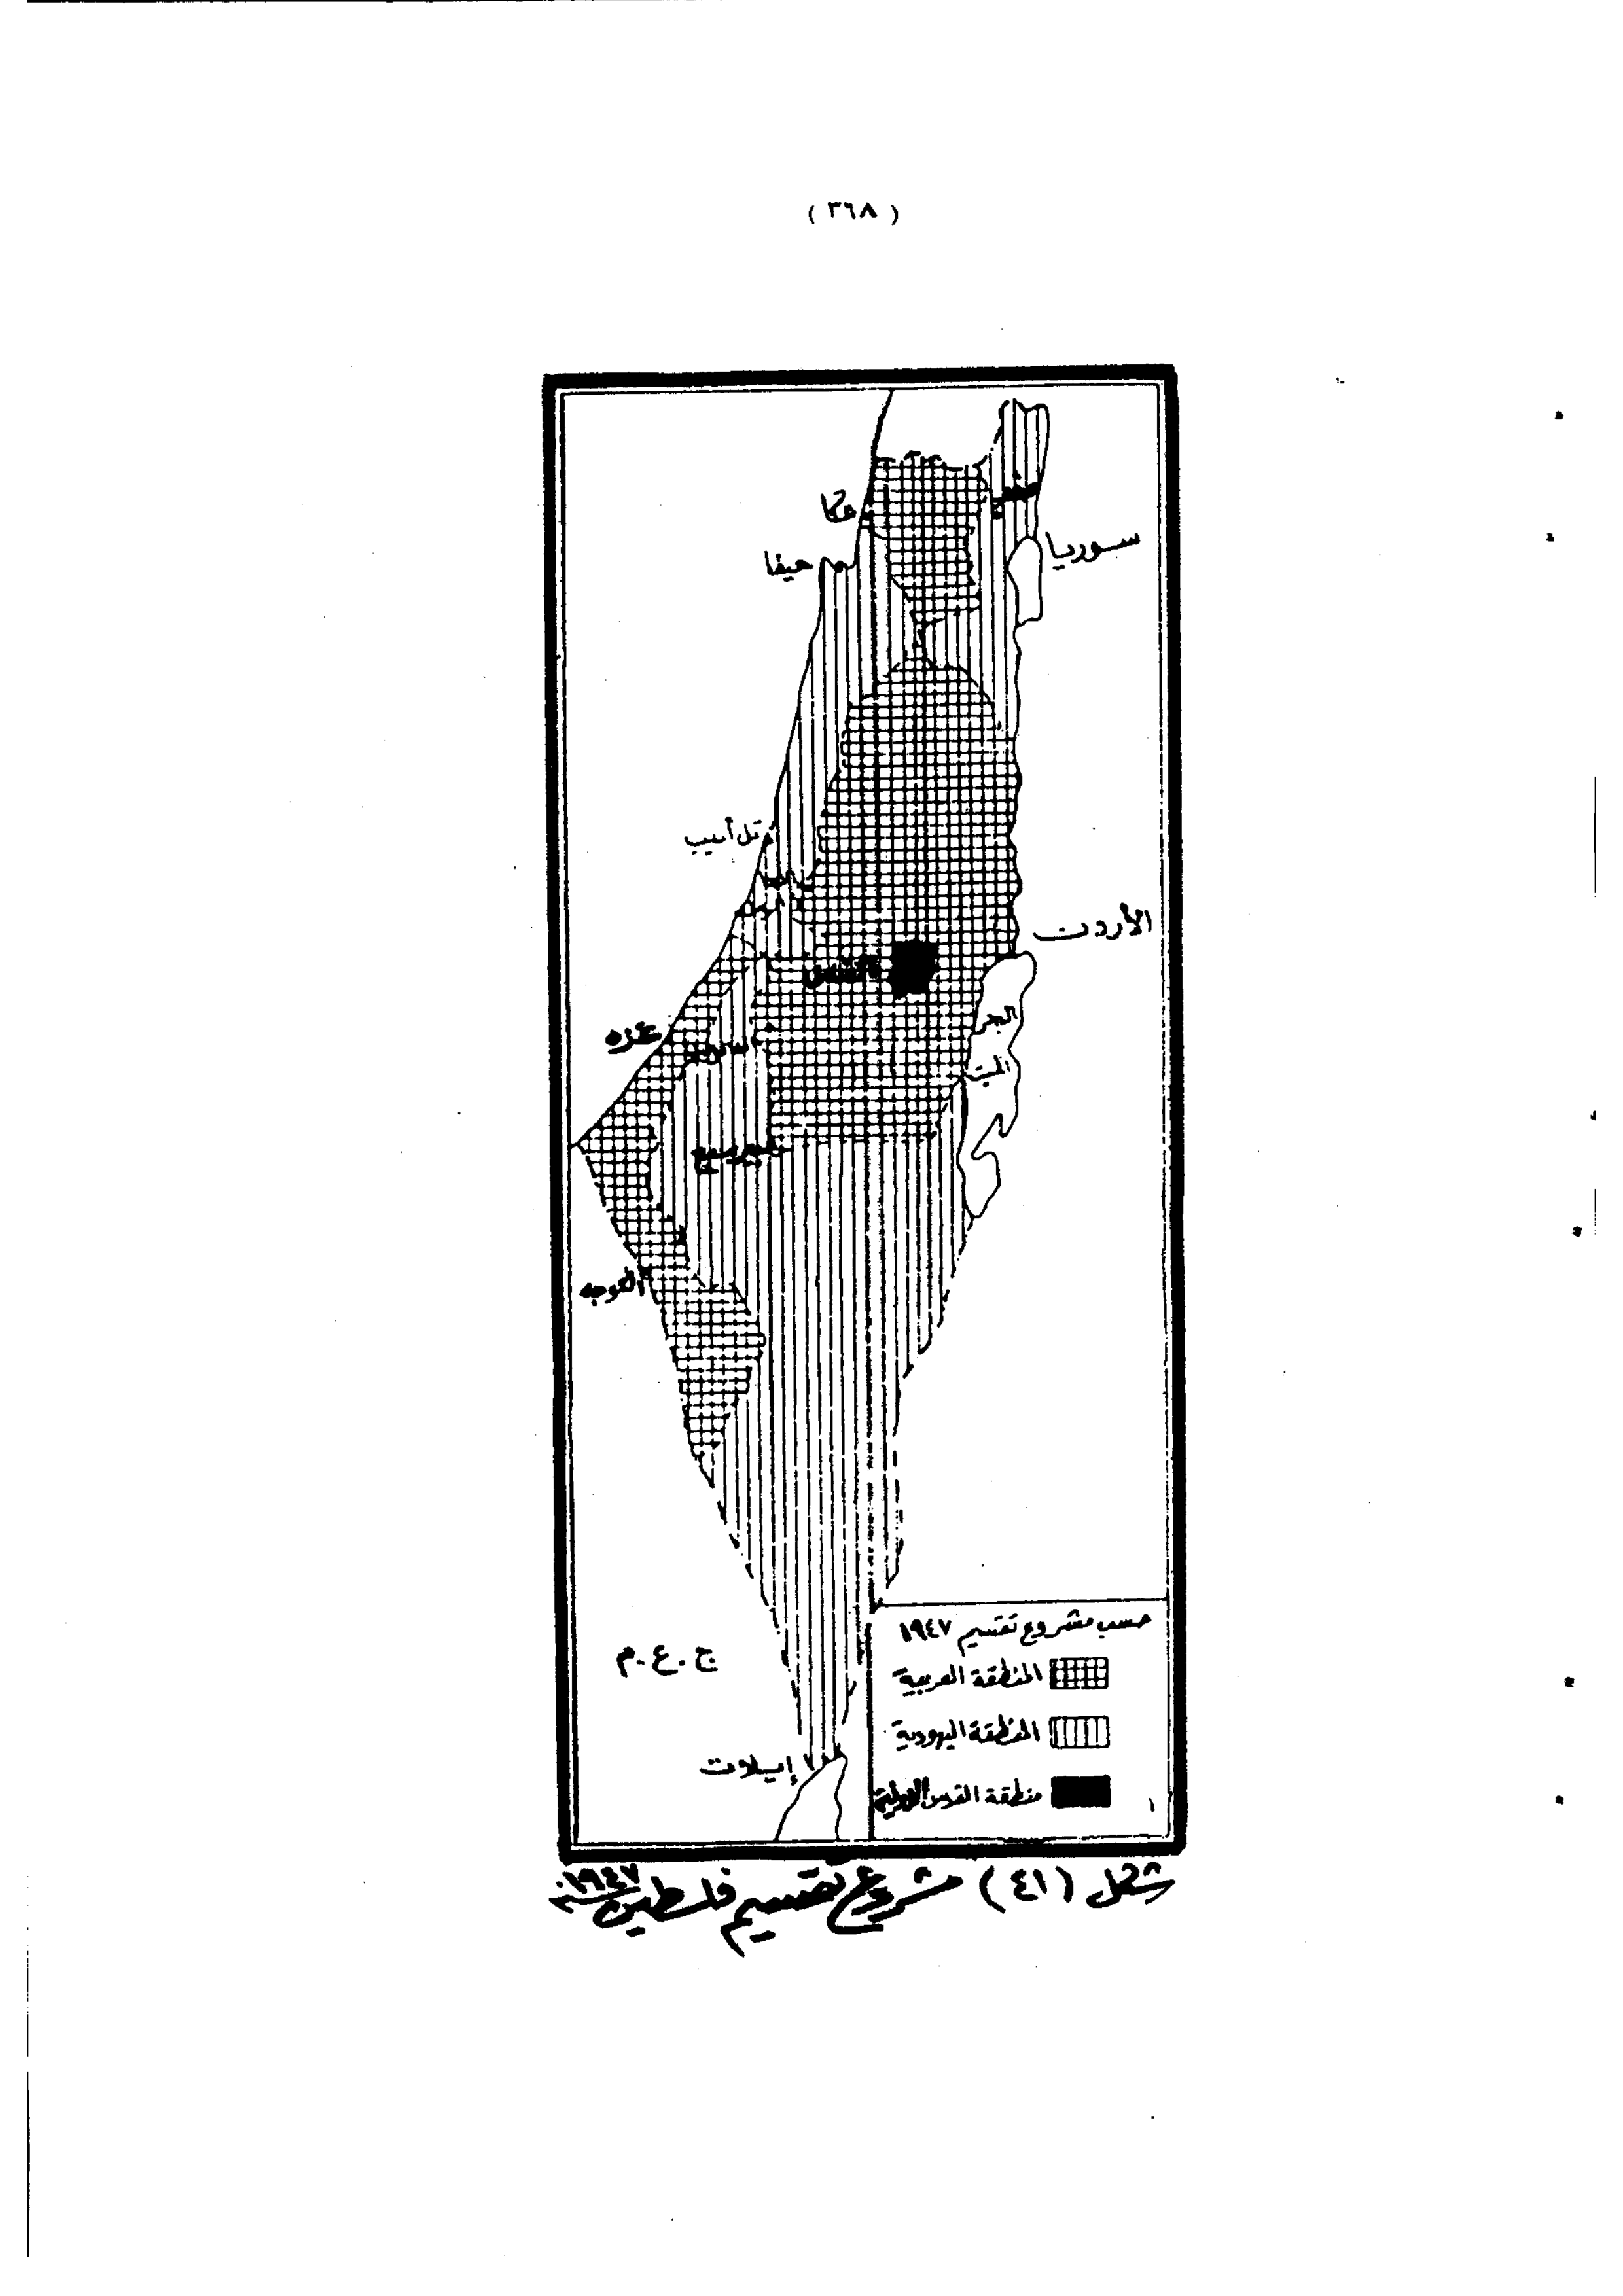 ( ٣٦٨ )
عكا
صفد
سوريا
حيفا
تل أبيب
الأردن
القدس
البحر
الميت
غزه
بير سبع
العوجه
ج.ع.م
إيلات
حسب مشروع تقسيم ١٩٤٧
المنطقة العربية
المنطقة اليهودية
منطقة القدس الدولية
شكل (٤١) مشروع تقسيم فلسطين سنة ١٩٤٧